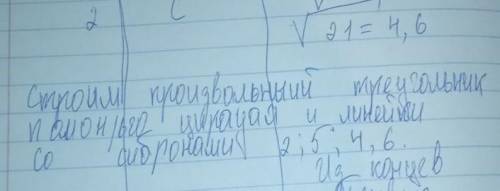 2 С
√21 = 4,6
Строим произвольный треугольник
помощью циркуля и линейки
со сторонами 2; 5; 4,6.
Из концев